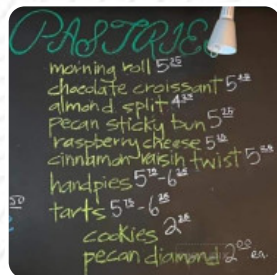 PASTRIES
morning roll 5 25
chocolate croissant 5 25
almond split 4
pecan sticky bun 5 25
raspberry cheese 5 25
cinnamon raisin twist 5 25
handpies 5 75 - 6 25
tarts 5 75 - 6 25
cookies 2 25
pecan diamond 2 00 ea.
50